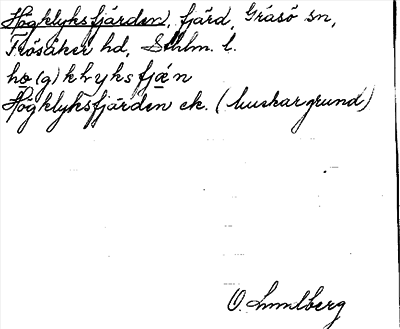 Högklyksfjärden, fjärd, Gräsö sn,
Frösåker hd, Sthlm. l.
hø(g)klyksfjæn
Högklyksfjärden ek. (huskargrund)
O. Lundberg